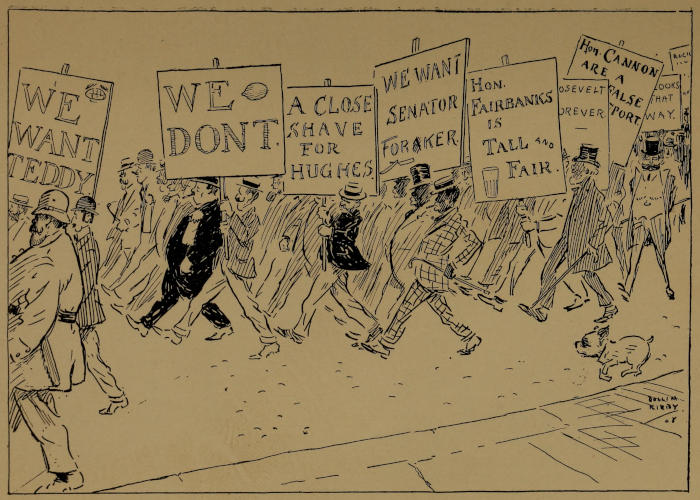 WE
WANT
TEDDY
WE
DON'T.
A CLOSE
SHAVE
FOR
HUGHES
WE WANT
SENATOR
FORAKER
HON.
FAIRBANKS
IS
TALL AND
FAIR.
OSEVELT
OREVER
—
HON. CANNON
ARE A
FALSE
PORT
OOKS
THAT
WAY.
ROLLIN
KIRBY
08